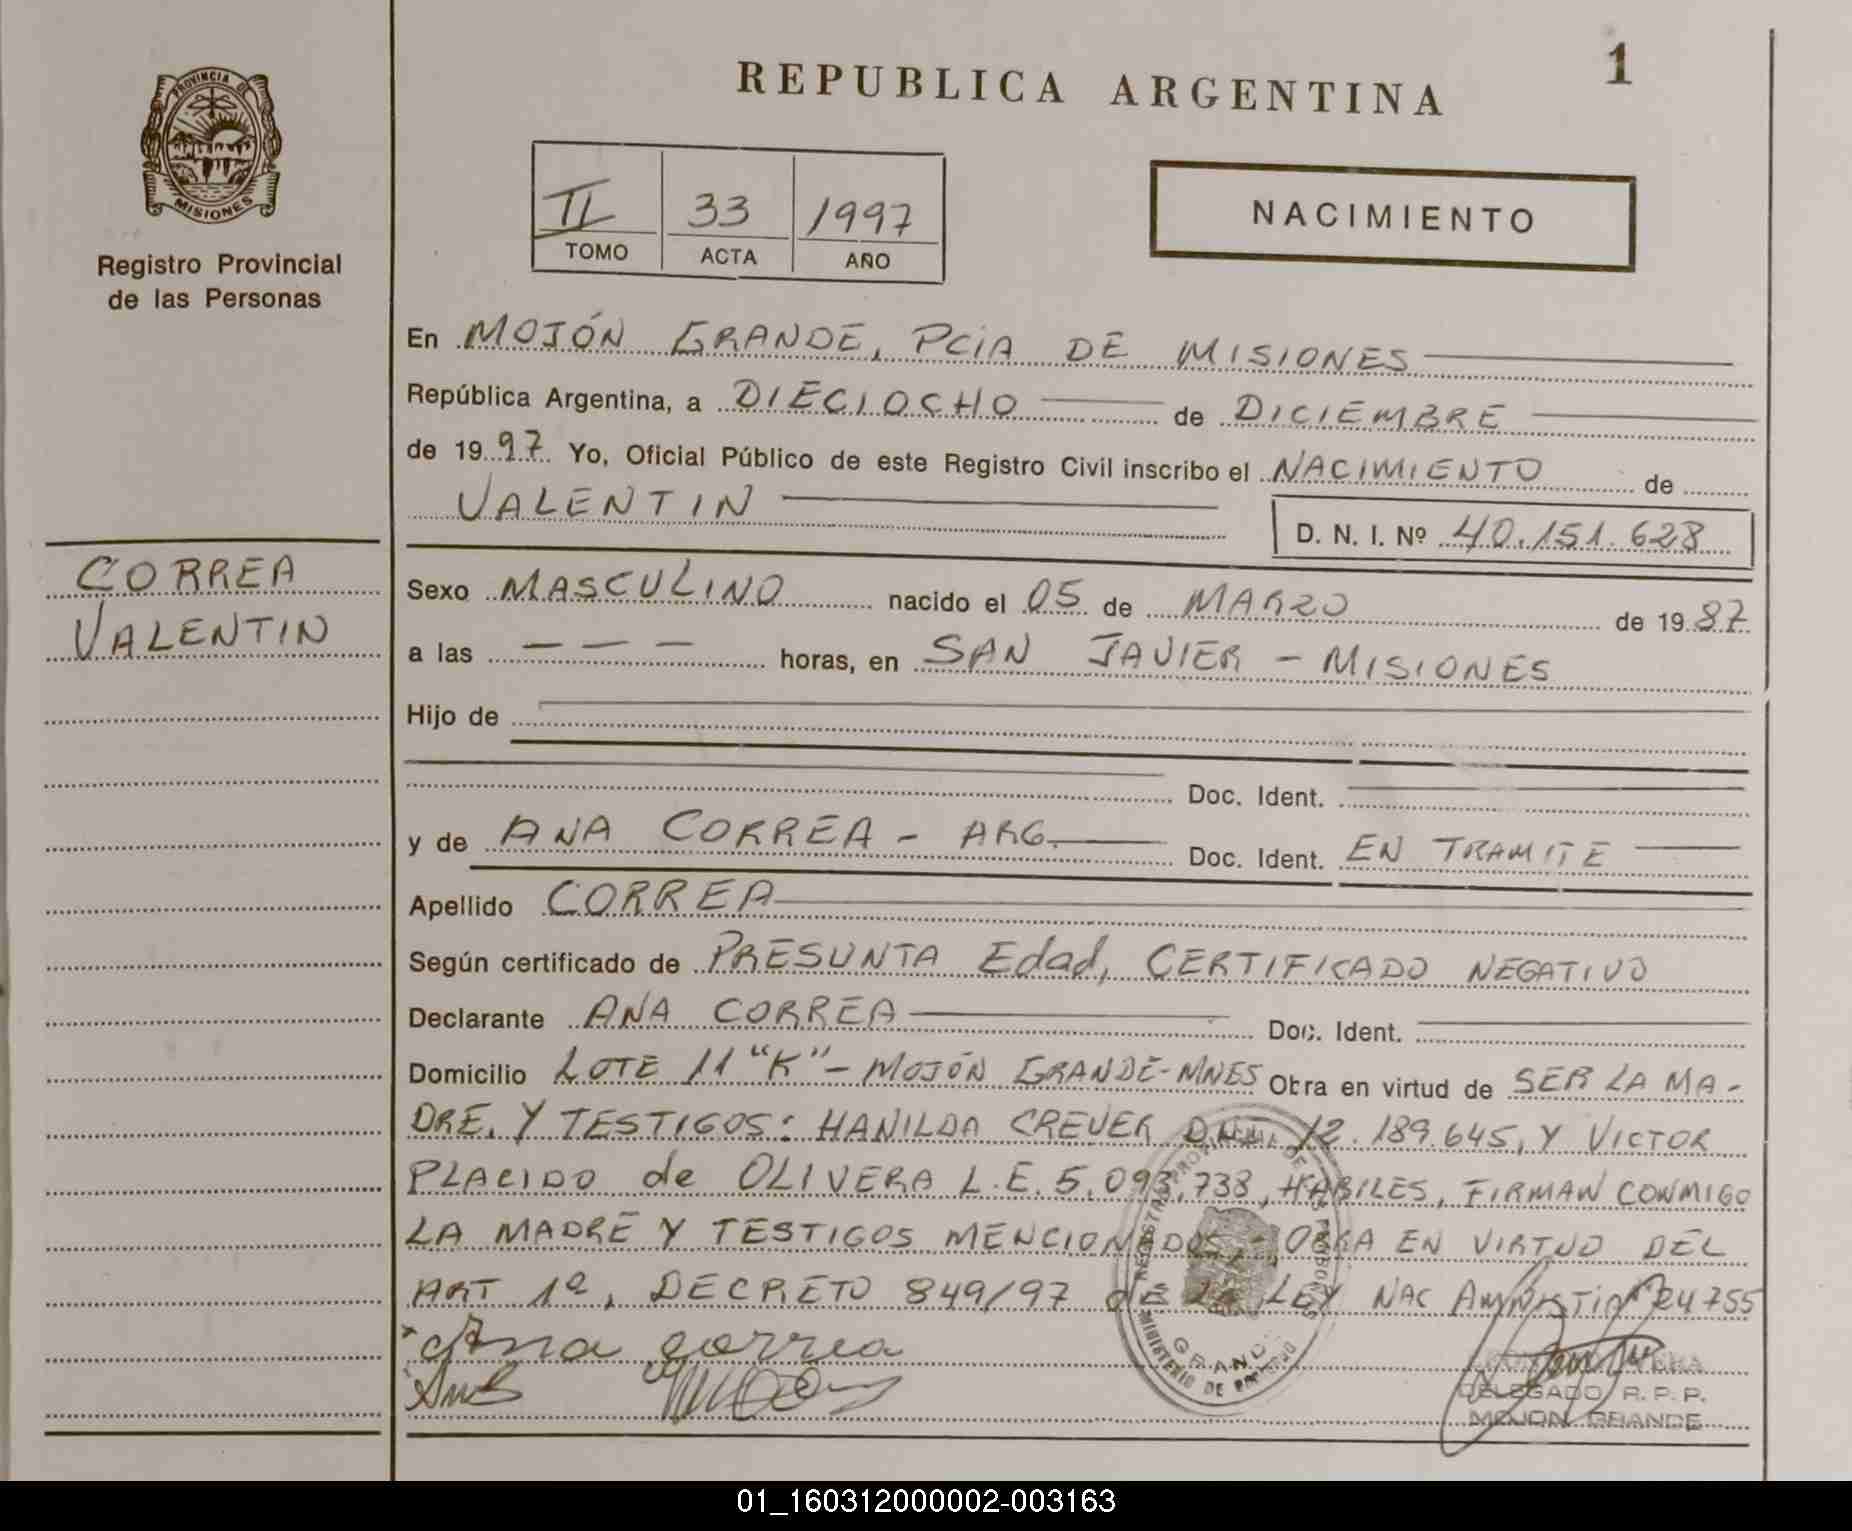 REPUBLICA ARGENTINA
1
PROVINCIA DE
MISIONES
Registro Provincial
de las Personas
TL 33 1997
TOMO ACTA AÑO
NACIMIENTO
En MOJÓN GRANDE, PCIA DE MISIONES
República Argentina, a DIECIOCHO de DICIEMBRE
de 1997 Yo, Oficial Público de este Registro Civil inscribo el NACIMIENTO de
VALENTIN
D. N. I. Nº 40.151.628
CORREA
VALENTIN
Sexo MASCULINO nacido el 05 de MARZO de 1987
a las — — — horas, en SAN JAVIER - MISIONES
Hijo de
Doc. Ident.
y de ANA CORREA - ARG. Doc. Ident. EN TRAMITE
Apellido CORREA
Según certificado de PRESUNTA Edad, CERTIFICADO NEGATIVO
Declarante ANA CORREA Doc. Ident.
Domicilio LOTE 11 "K" - MOJÓN GRANDE-MNES Obra en virtud de SER LA MA-
DRE. Y TESTIGOS: HANILDA CREUER DNI 12.189.645, Y VICTOR
PLACIDO de OLIVERA L.E. 5.093.738, HABILES, FIRMAN CONMIGO
LA MADRE Y TESTIGOS MENCIONADOS, - OBRA EN VIRTUD DEL
ART 1º, DECRETO 849/97 de LA LEY NAC AMNISTIA 24755
Ana Correa
DELEGADO R. P. P.
MOJON GRANDE
01_160312000002-003163